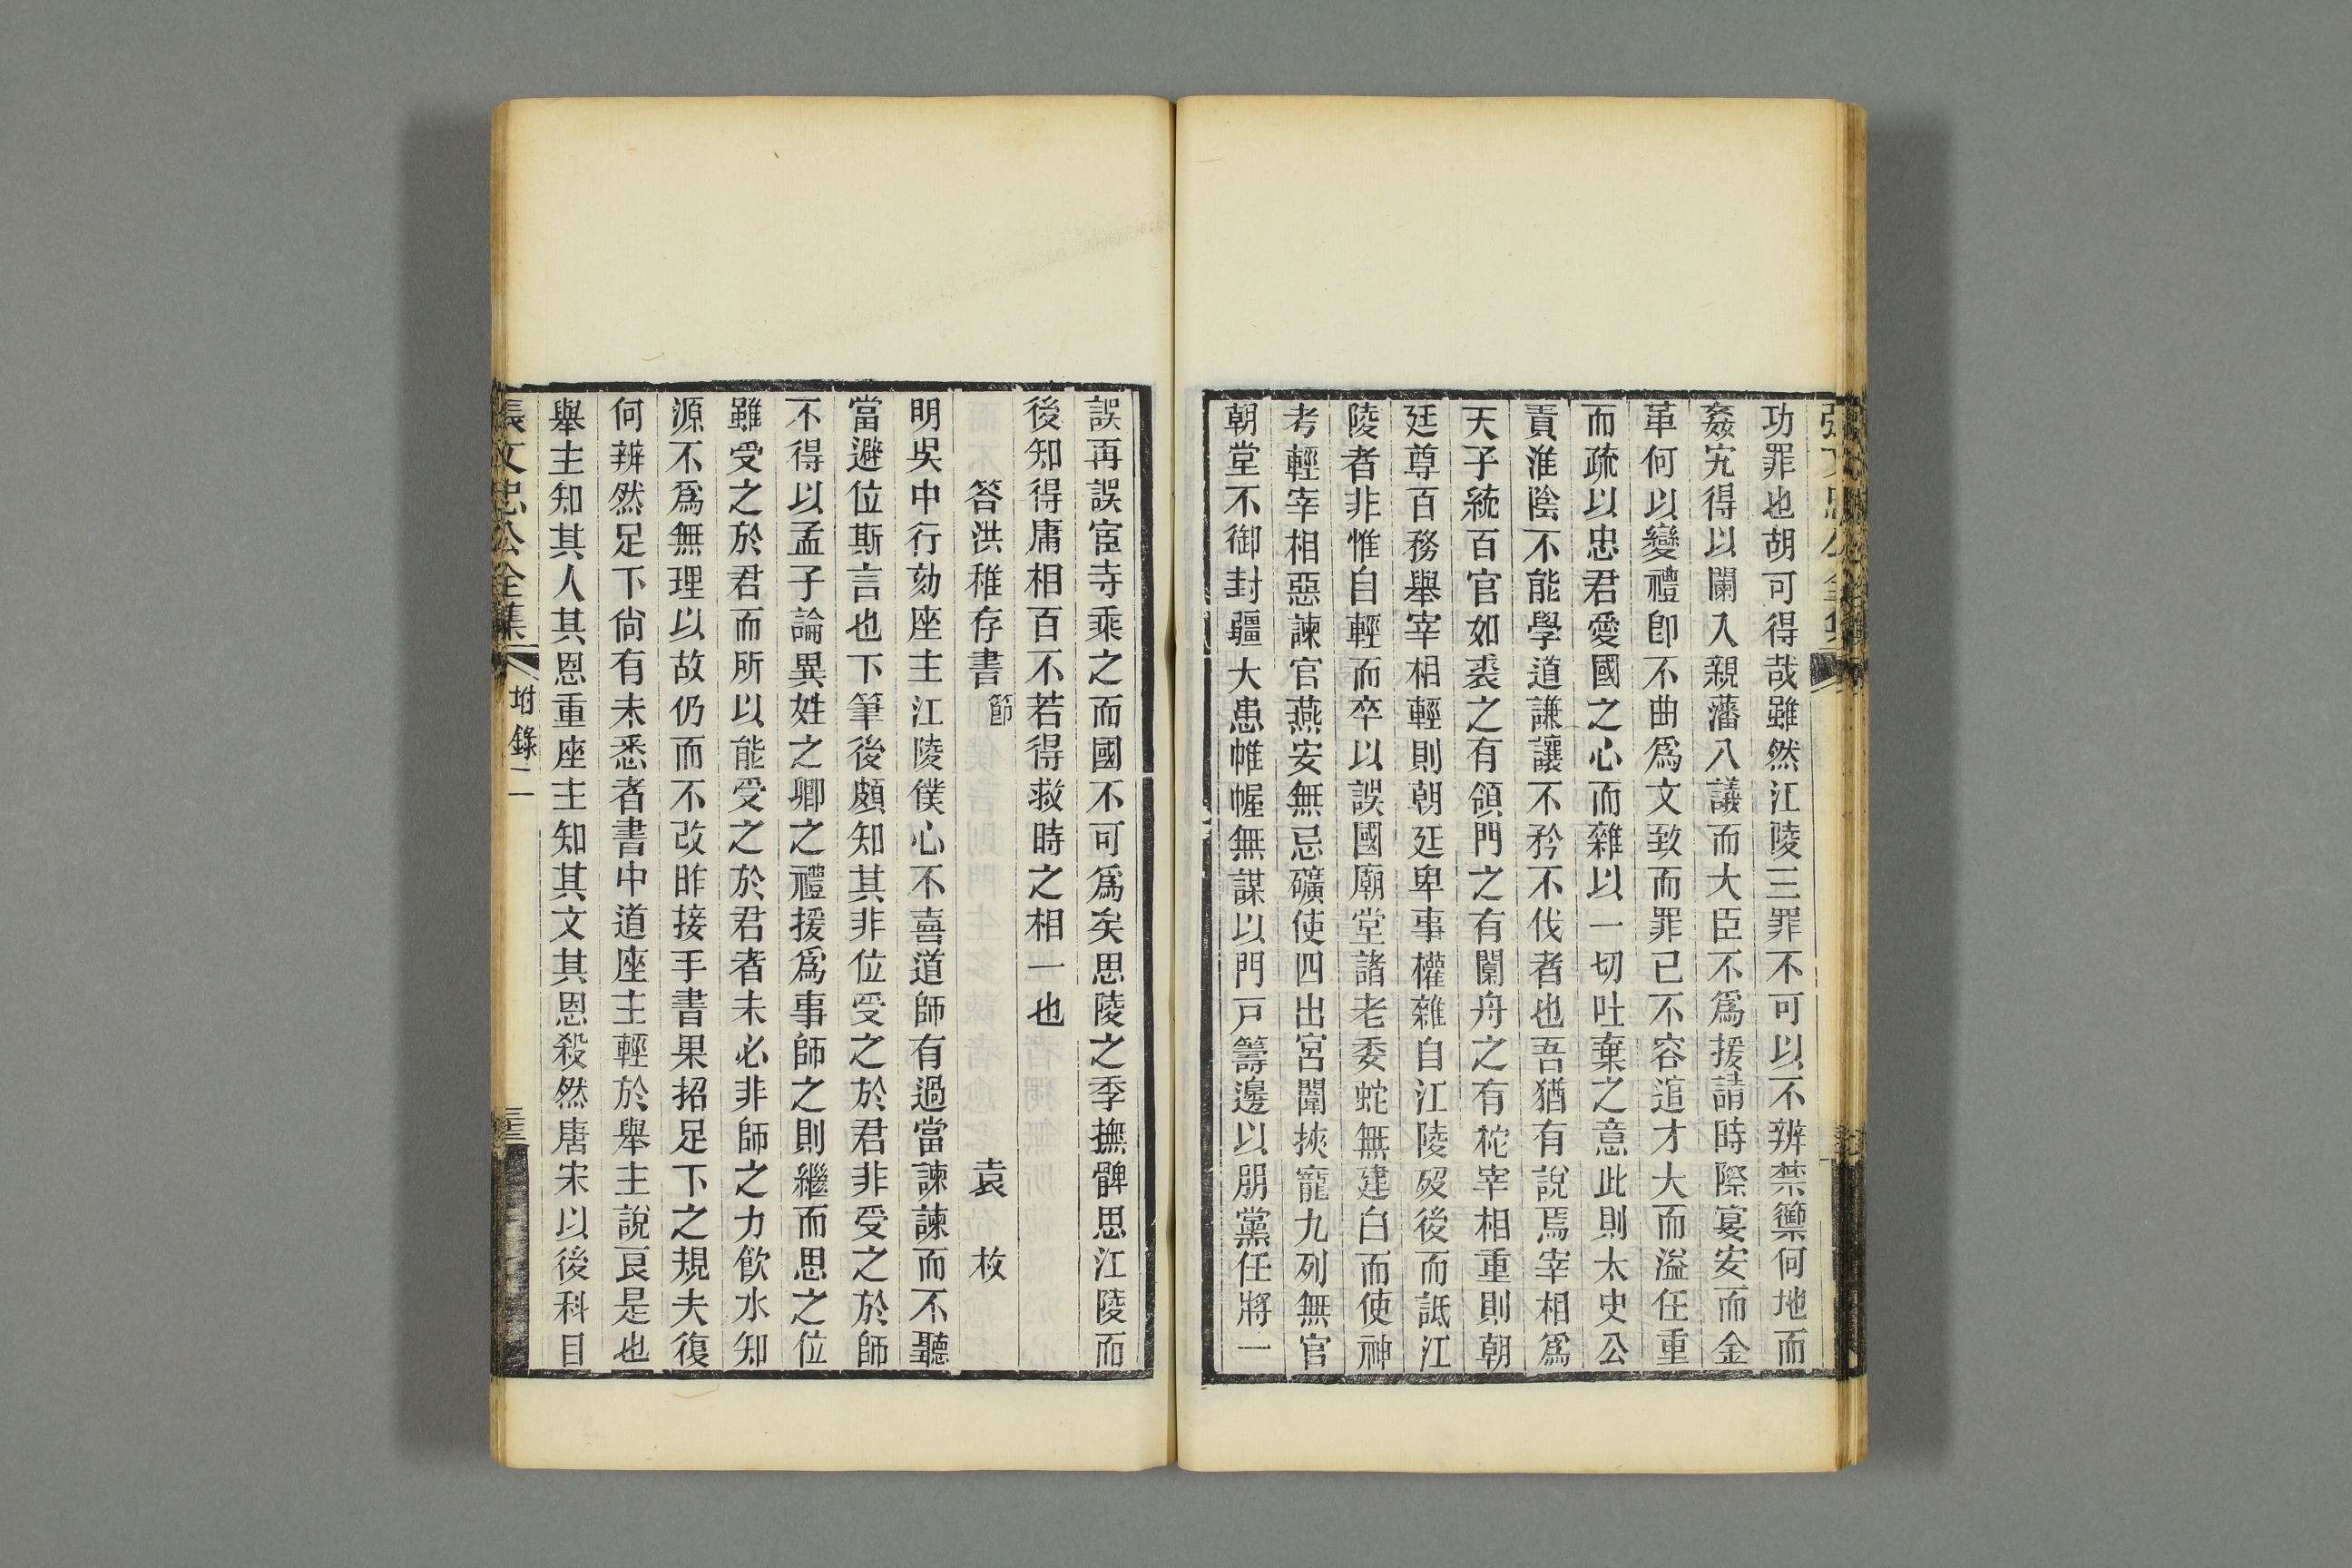 功罪也胡可得哉雖然江陵三罪不可以不辨禁籞何地而
姦宄得以闌入親藩八議而大臣不爲援請時際宴安而金
革何以變禮卽不曲爲文致而罪已不容逭才大而溢任重
而疏以忠君愛國之心而雜以一切吐棄之意此則太史公
責淮陰不能學道謙讓不矜不伐者也吾猶有說焉宰相爲
天子統百官如裘之有領門之有闑舟之有柁宰相重則朝
廷尊百務舉宰相輕則朝廷卑事權雜自江陵歿後而詆江
陵者非惟自輕而卒以誤國廟堂諸老委蛇無建白而使神
考輕宰相惡諫官燕安無忌礦使四出宮闈挾寵九列無官
朝堂不御封疆大患帷幄無謀以門戸籌邊以朋黨任將一
誤再誤宦寺乘之而國不可爲矣思陵之季撫髀思江陵而
後知得庸相百不若得救時之相一也
答洪稚存書節 袁枚
明吳中行劾座主江陵僕心不喜道師有過當諫諫而不聽
當避位斯言也下筆後頗知其非位受之於君非受之於師
不得以孟子論異姓之卿之禮援爲事師之則繼而思之位
雖受之於君而所以能受之於君者未必非師之力飲水知
源不爲無理以故仍而不改昨接手書果招足下之規夫復
何辨然足下尙有未悉者書中道座主輕於舉主說良是也
舉主知其人其恩重座主知其文其恩殺然唐宋以後科目
張文忠公全集 坿錄二